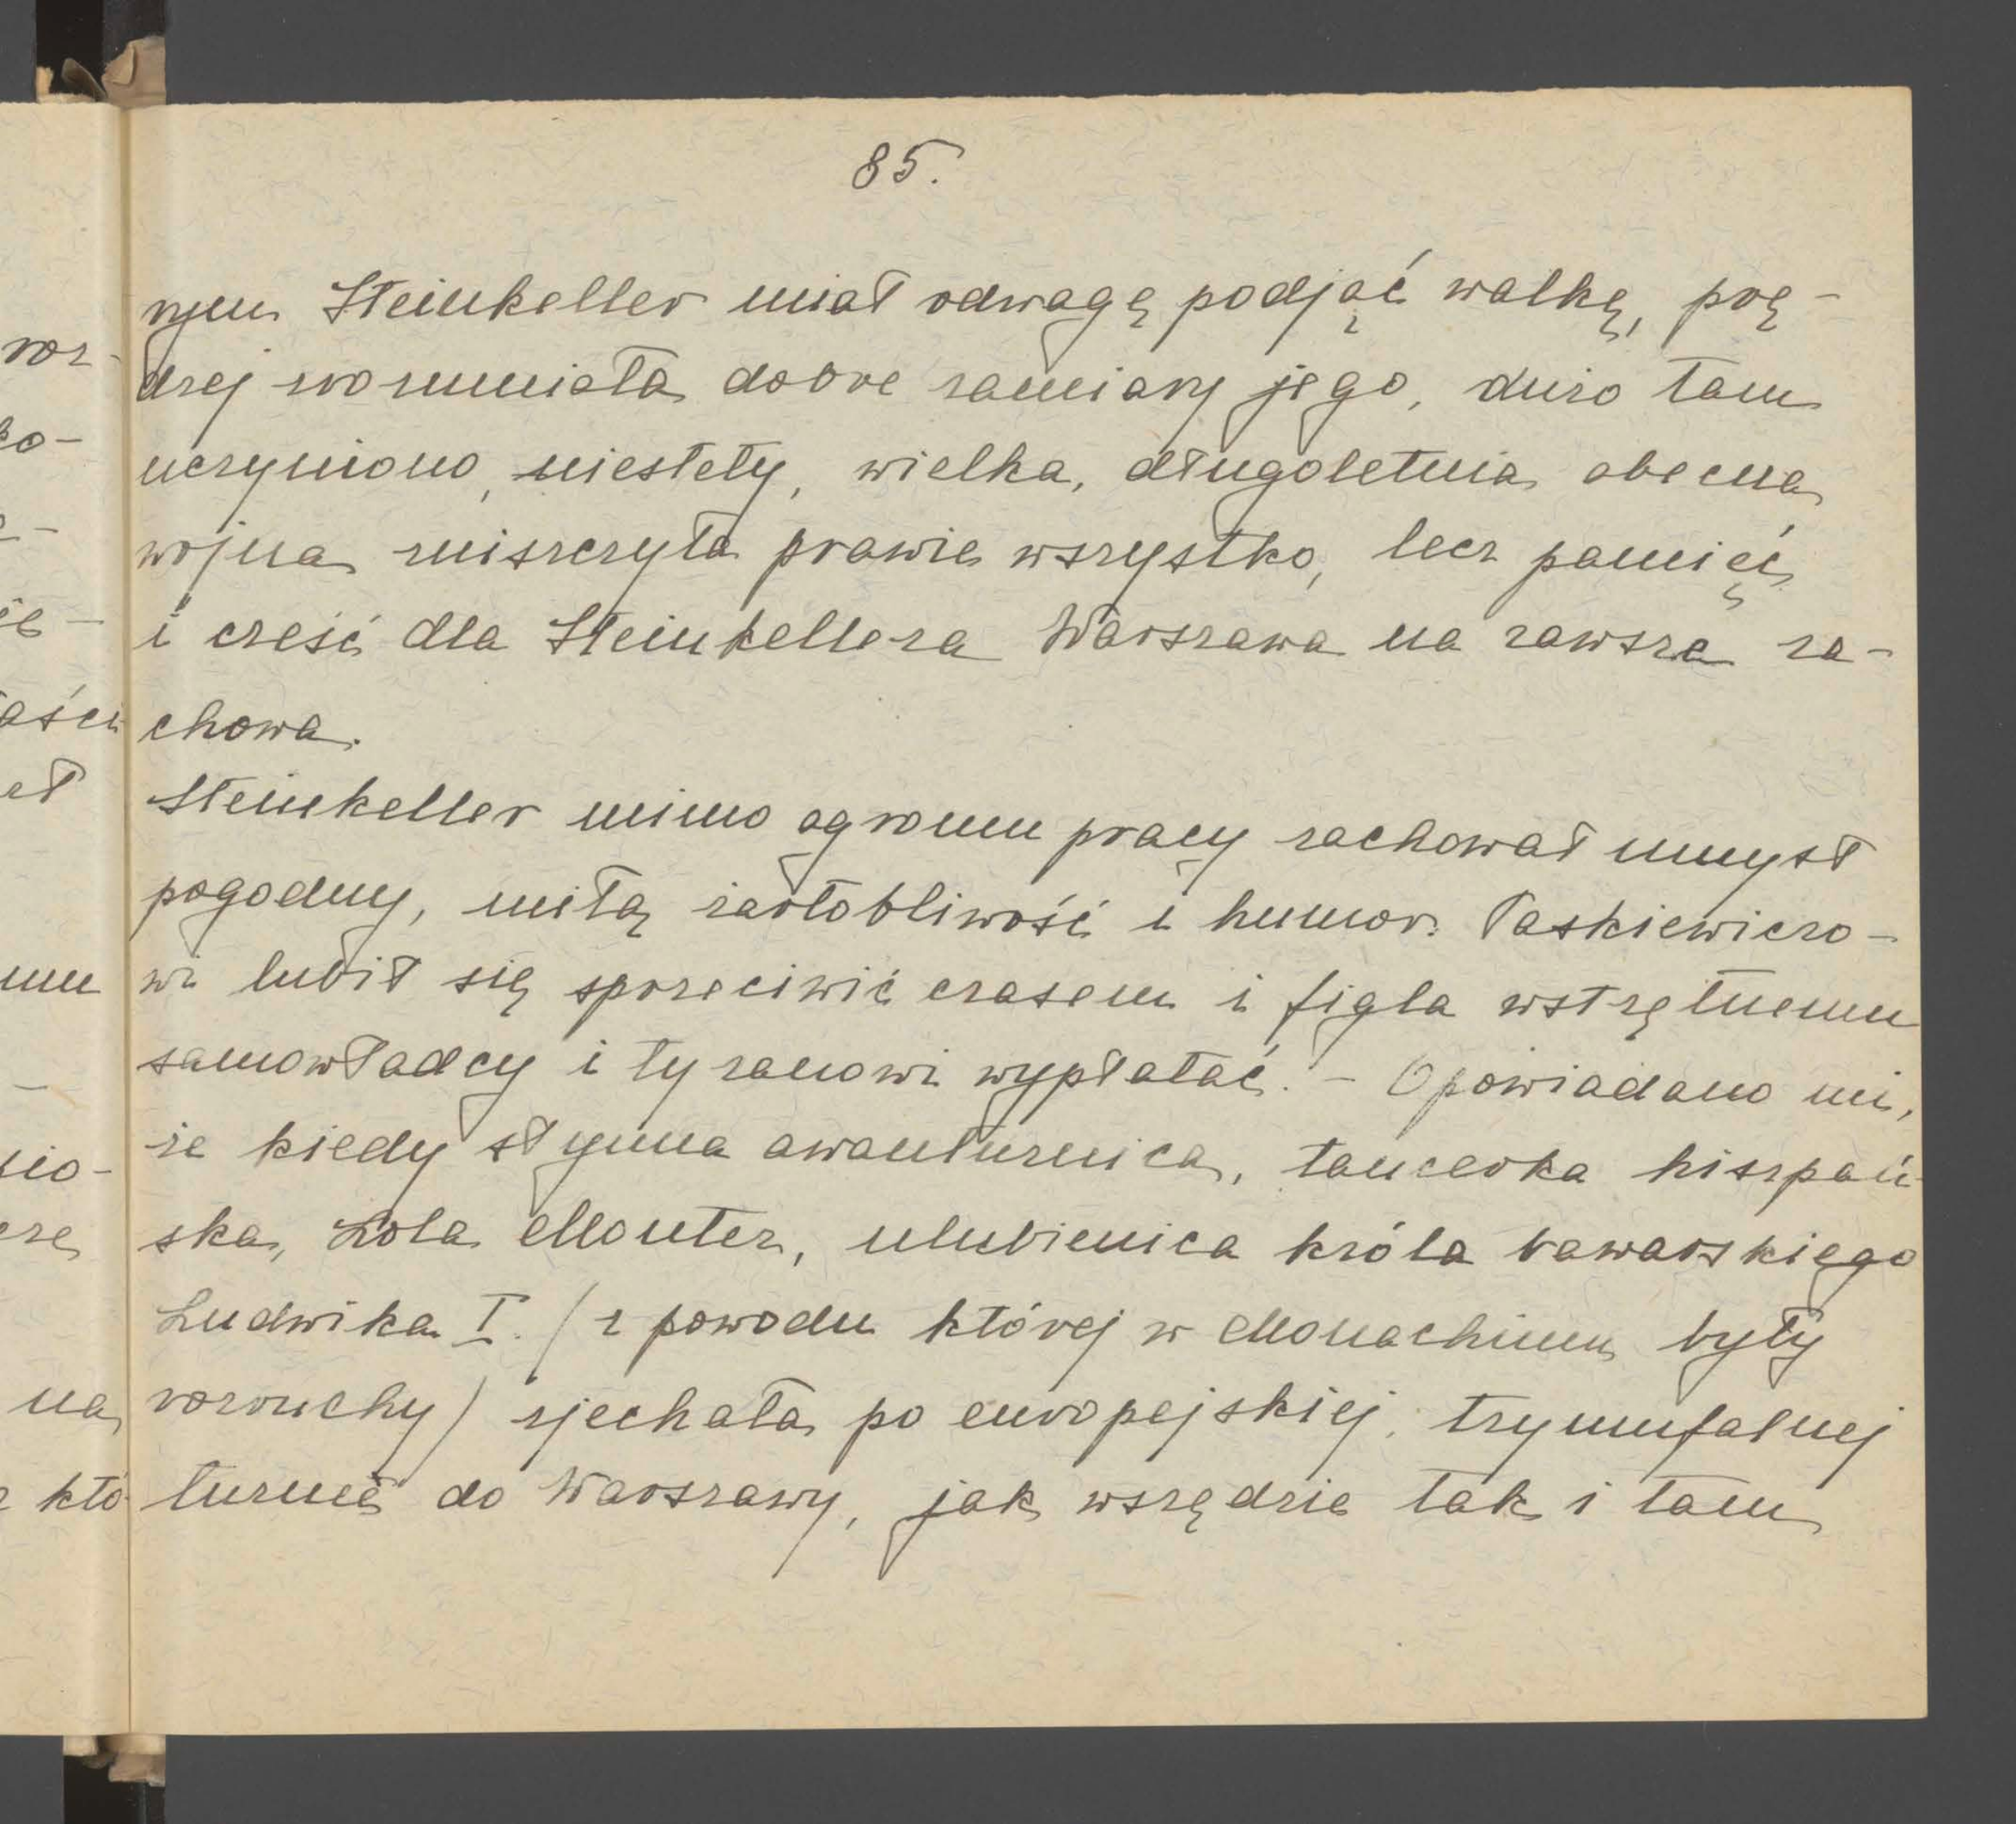 85.
rym Steinkeller miał odwagę podjąć walkę, prę-
dzej zrozumiała dobre zamiary jego, dużo tam
uczyniono, niestety, wielka, długoletnia obecna
wojna zniszczyła prawie wszystko, lecz pamięć
i cześć dla Steinkellera Warszawa na zawsze za-
chowa.
Steinkeller mimo ogromu pracy zachował umysł
pogodny, miłą żartobliwość i humor. Paskiewiczo-
wi lubił się sprzeciwić czasem i figla wstrętnemu
samowładcy i tyranowi wypłatać. - Opowiadano mi,
że kiedy słynna awanturnica, tancerka hiszpań-
ska, Lola Montez, ulubienica króla bawarskiego
Ludwika I. (z powodu której w Monachium były
rozruchy) zjechała po europejskiej, tryumfalnej
turnée do Warszawy, jak wszędzie tak i tam
roz-
ko-
ie-
aści
ał
mu
nio-
cze
na
z któ-